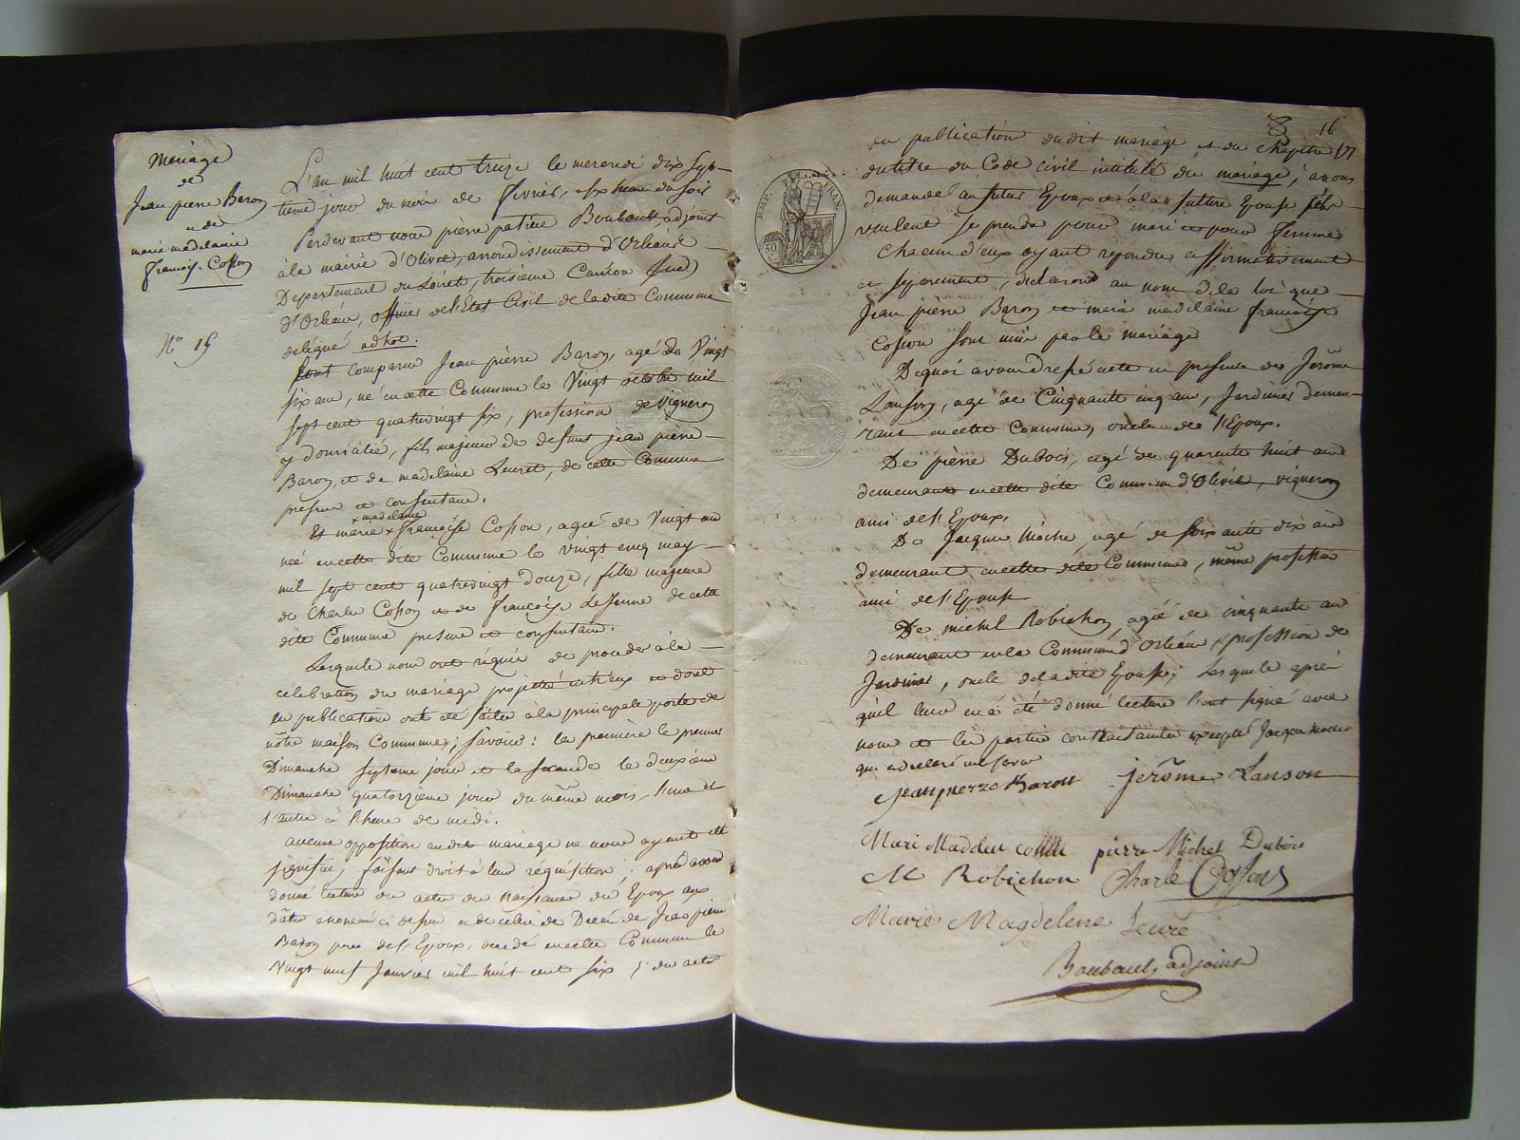 Mariage
de
Jean pierre Baron
et de
marie madelaine
françoise Cosson
No 15
L'an mil huit cent treize le mercredi dix Sept-
tieme jour du mois de fevrier, six heure du soir
Pardevant nous pierre patien Boubault, adjoint
à la mairie d'Olivet, arrondissement d'Orleans
Departement du Loiret, troisieme Canton Sud
d'Orléans, officier de l'Etat Civil de la dite Commune
délégué adhoc.
Sont comparu Jean pierre Baron, agé de Vingt
six ans, né en cette Commune le Vingt octobre mil
sept cent quatrevingt six, profession de vigneron
y domicilié, fils majeur de defunt jean pierre
Baron, et de madelaine Leuret, de cette Commune
presente et consentante.
+ madelaine
Et marie + françoise Cosson, agée de Vingt an
née en cette dite Commune le vingt cinq may
mil sept cent quatrevingt douze, fille majeure
de Charles Cosson et de françoise LeJeune de cette
dite Commune presens et consentans.
Lesquels nous ont requis de proceder à la
celebration du mariage projetté entreux et dont
les publications ont été faites à la principale porte de
nôtre maison Commune; savoir: la première le premier
Dimanche septieme jour et la seconde le deuxieme
Dimanche quatorzieme jour du même mois, l'une et
l'autre à l'heure de midi.
aucune opposition au dit mariage ne nous ayant été
signifiée, faisant droit à leur réquisition; après avoir
donné lecture des actes de Naissance des Epoux aux
dâtes énoncés ci dessus et de celui de Décès de Jean pierre
Baron pere de l'Epoux, décédé en cette Commune le
Vingt neuf Janvier mil huit cent six; des actes
16
de publication dudit mariage et du chapitre VI
du titre du Code civil intitulé du mariage, avons
demandé au futur Epoux et à la future Epouse s'ils
veulent se prendre pour mari et pour femme
Chacun d'eux ayant répondu affirmativement
et séparement, déclarons au nom de la loi que
Jean pierre Baron et marie madelaine françoise
Cosson sont unis par le mariage
EMP. FRAN.
De quoi avons dressé acte en presence des Jerôme
Lanson, agé de Cinquante cinq ans, Jardinier demeu-
rant en cette Commune, oncle de l'Epoux.
De pierre Dubois, agé de quarante huit ans
demeurant en cette dite Commune d'Olivet, vigneron
ami de l'Epoux.
De Jacque agé de soixante dix ans
demeurant en cette dite Commune, même profession
ami de l'Epouse
De michel Robichon, agé de cinquante an
demeurant en la Commune d'Orléans, profession de
Jardinier, oncle de la dite Epouse; Lesquels après
qu'il leur en a été donné lecture l'ont signé avec
nous et les parties contractantes excepté Jacque
qui a declaré ne savoir
jeanpierre Baron jerôme Lanson
Mari Madelen pierre Michel Dubois
M Robichon Charle Cosson
Marie Magdelene Leuré
Boubault, adjoint